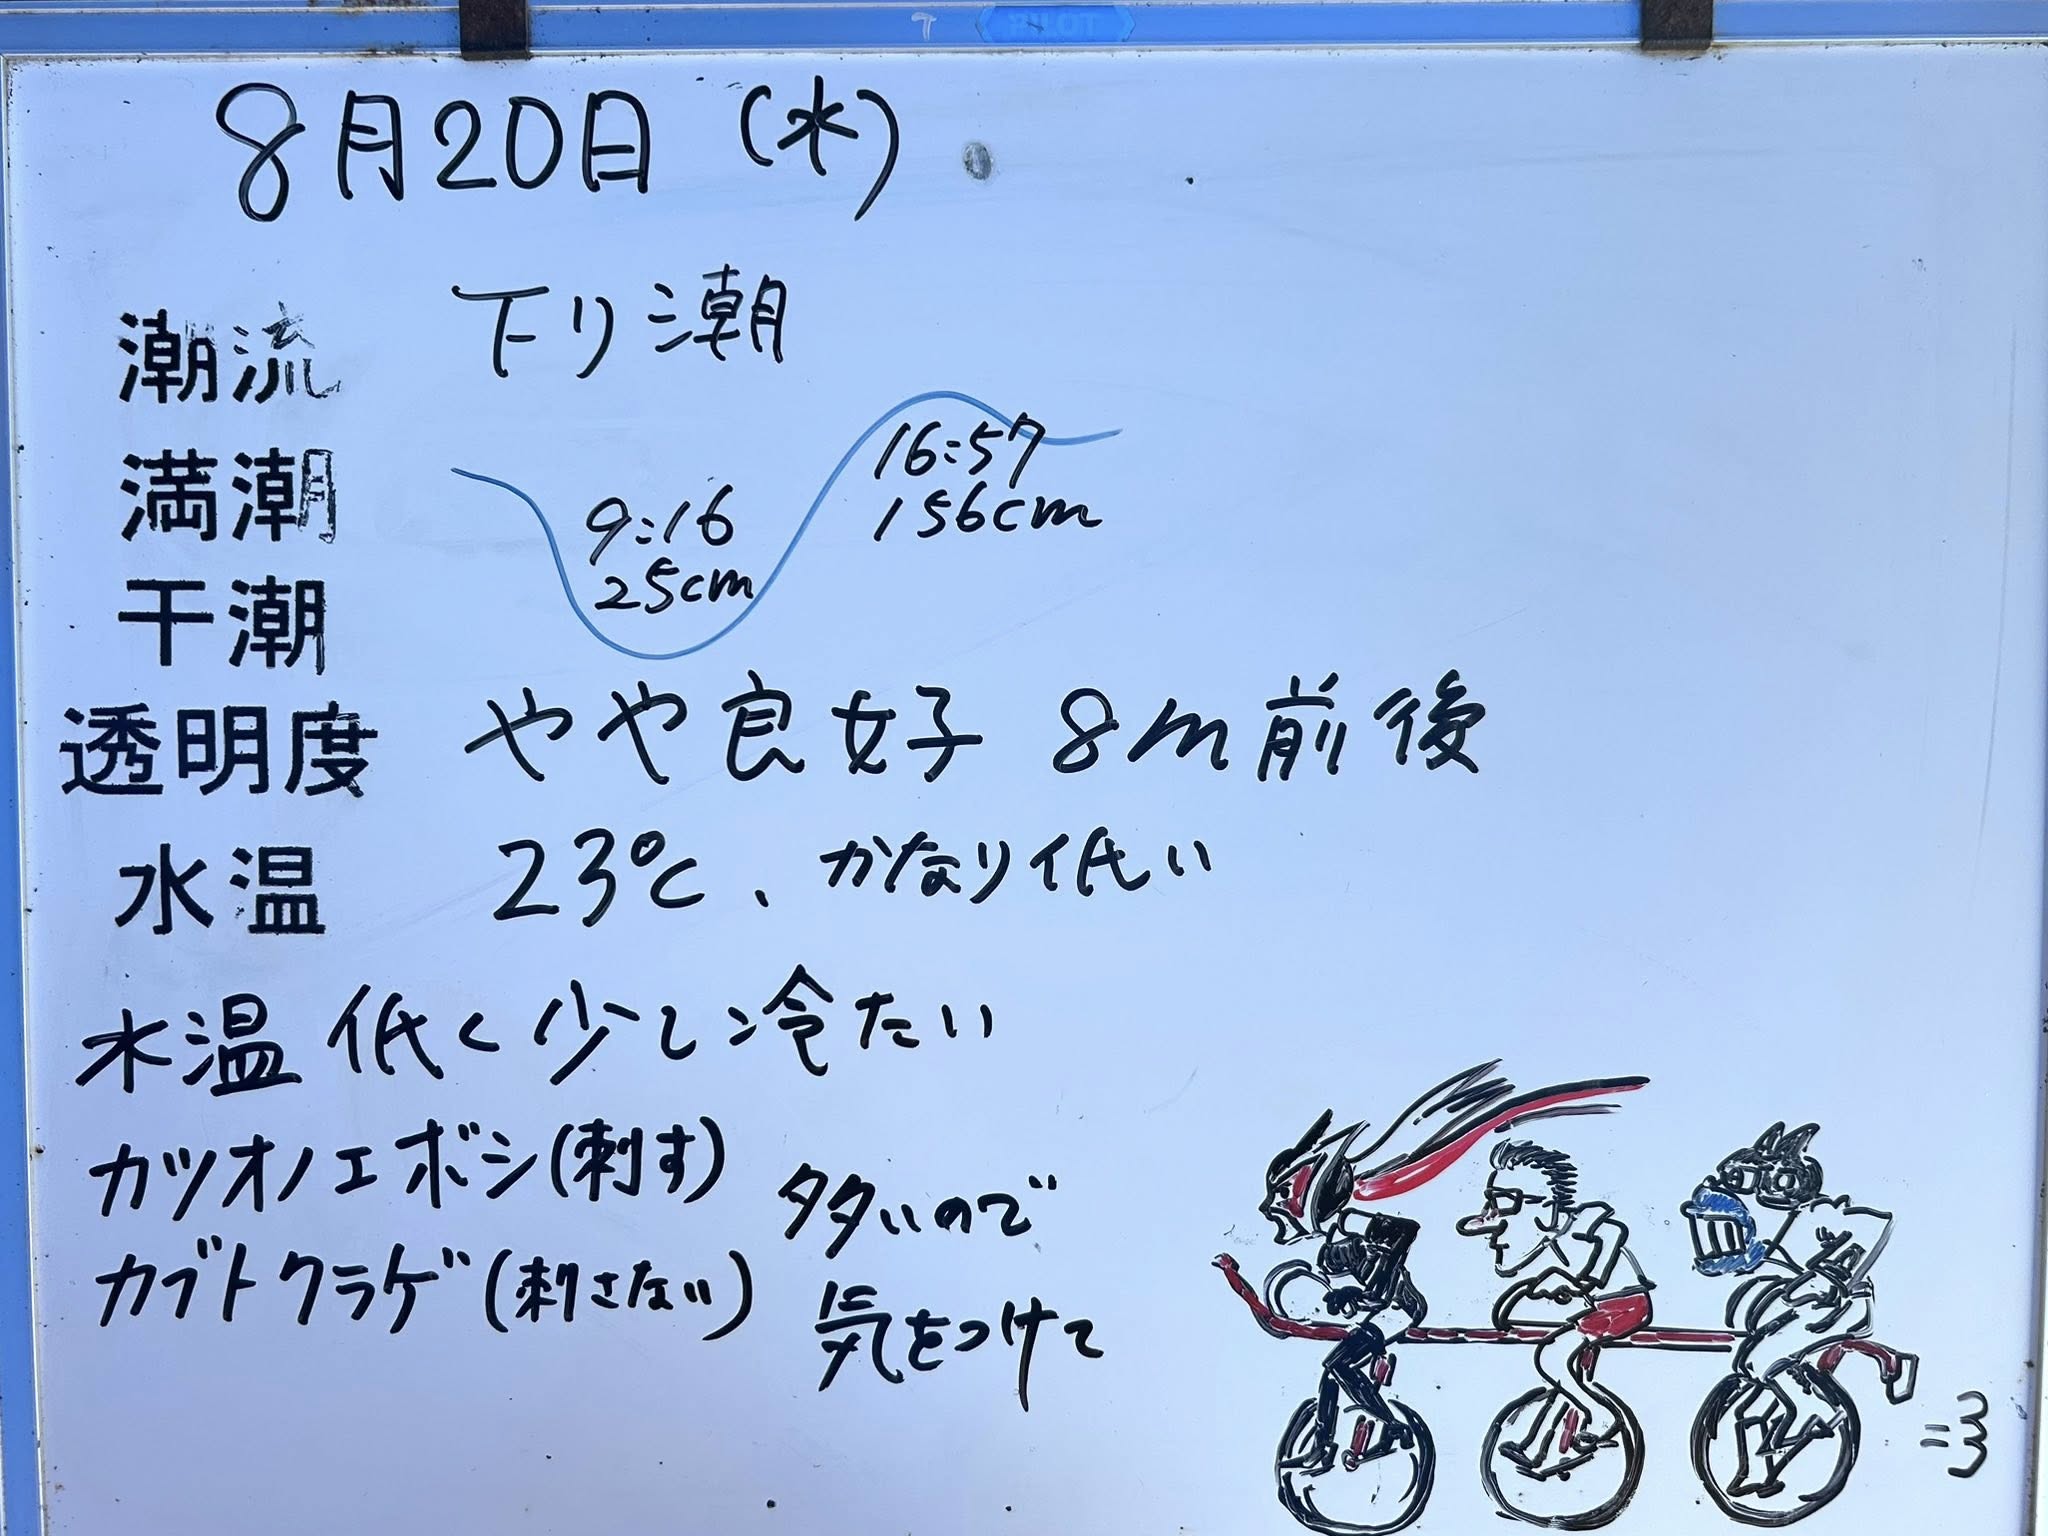 8月20日(水)
潮流 下り潮
満潮 16:57 156cm
干潮 9:16 25cm
透明度 やや良好 8m前後
水温 23℃、かなり低い
水温低く少し冷たい
カツオノエボシ(刺す)
カブトクラゲ(刺さない)
多いので
気をつけて